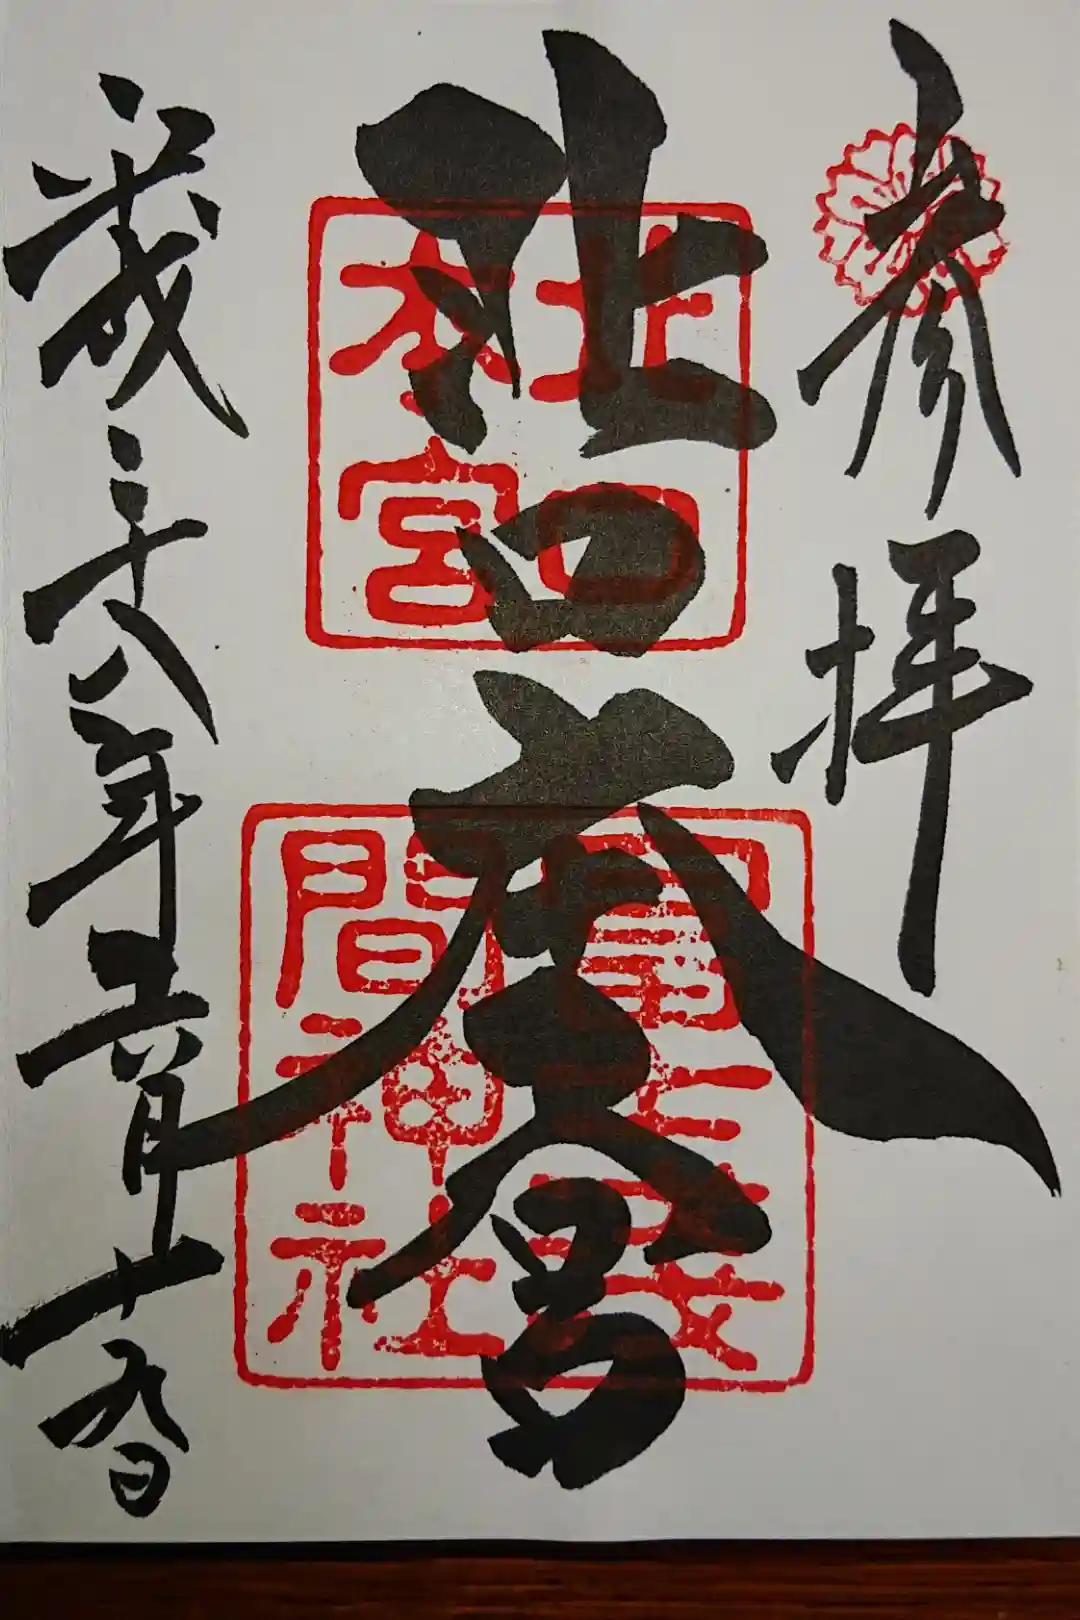 参拝
北口本宮
平成二十八年六月十九日
北口
本宮
冨士浅
間神社